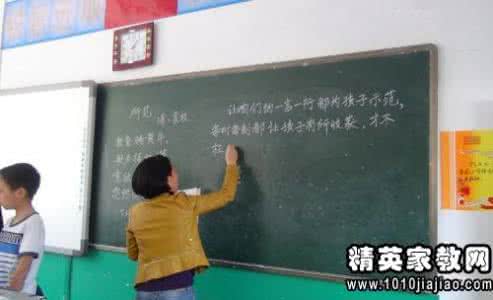 所见
清·袁枚
牧童骑黄牛,
歌声振林
意欲
忽然
让我们的一言一行都为孩子示范,
每时每刻都让孩子有所收获,才不
枉
精英家教网
www.1010jiajiao.com